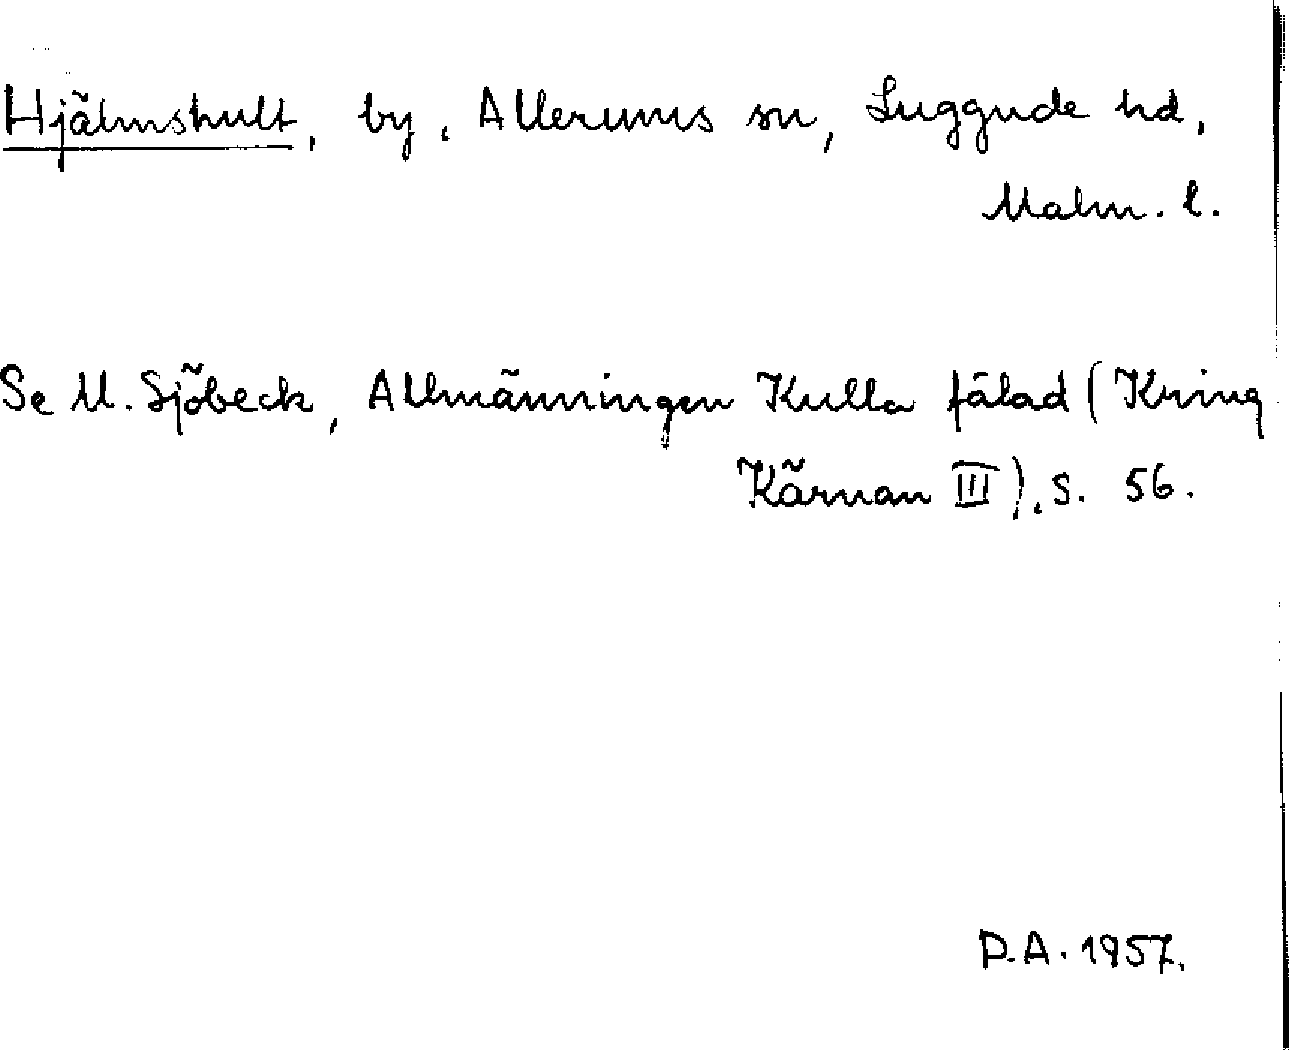 Hjälmshult, by, Allerums sn, Luggude hd,
Malm. l.
Se M. Sjöbeck, Allmänningen Kulla fälad (Kring
Kärnan III), s. 56.
D.A. 1957.